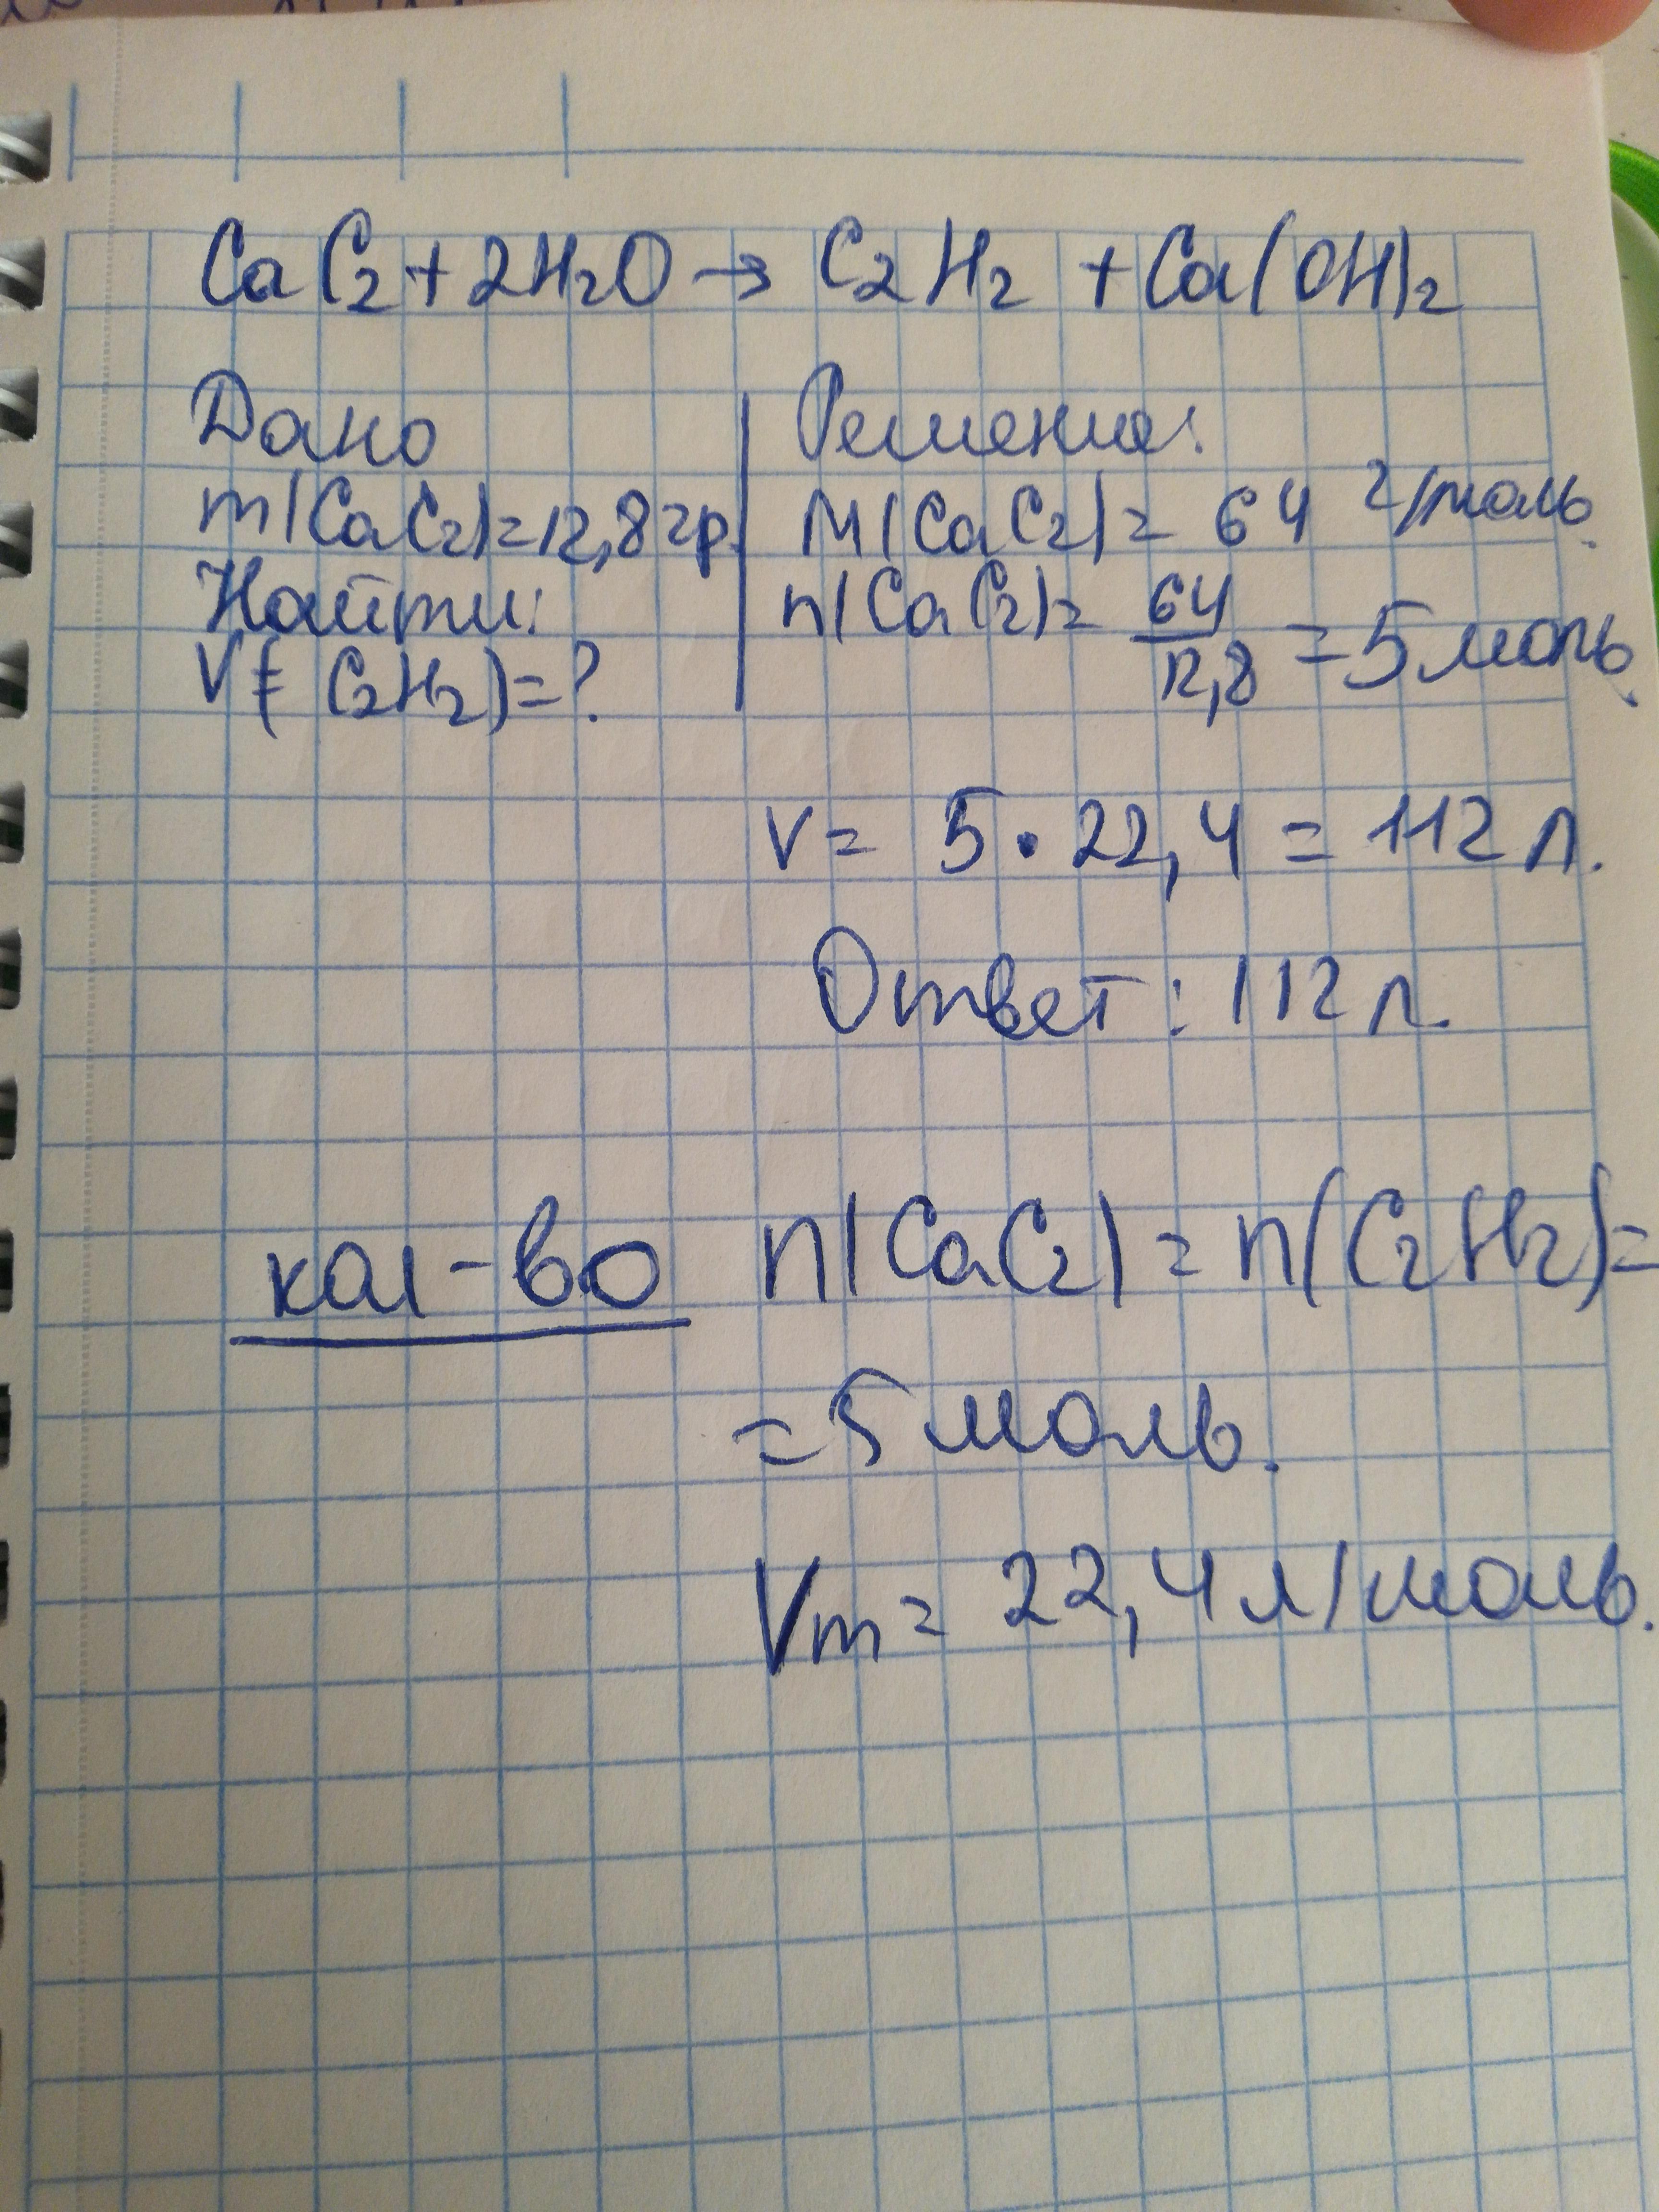 CaC2+2H2O → C2H2 + Ca(OH)2
Дано
m(CaC2)=12,8гр.
Найти:
V(C2H2)=?
Решение:
M(CaC2)= 64 г/моль.
n(CaC2)= 64/12,8 =5моль.
V= 5·22,4 = 112 л.
Ответ: 112 л.
кол-во n(CaC2)=n(C2H2)=
=5 моль.
Vm= 22,4 л/моль.